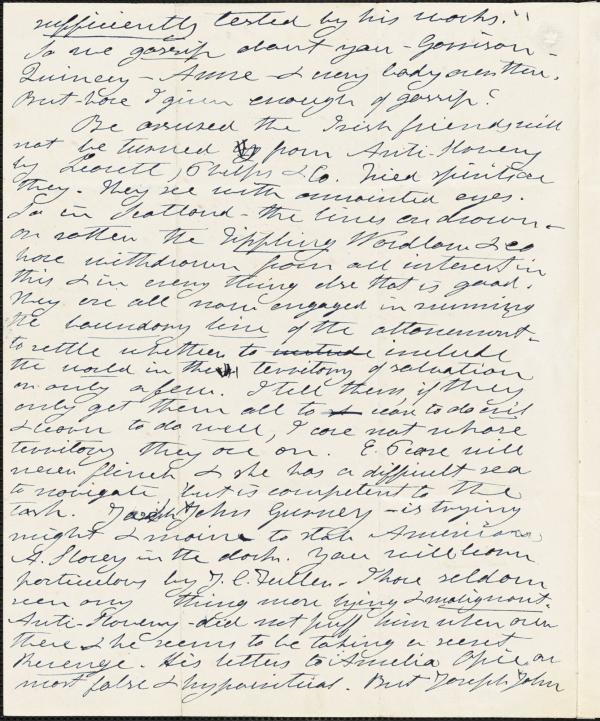 sufficiently tested by his works."
So we gossip about you - Garrison -
Quincey - Anne - & every body over there.
But have I given enough of gossip?
Be assured the Irish friends will
not be turned from Anti-Slavery
by Leavitt, Phelps & Co. Tried spirits are
they. They see with annointed eyes.
So in Scotland - the lines are drawn -
or rather the Tippling Wardlaw & co
have withdrawn from all interest in
this & in every thing else that is good.
They are all now engaged in running
the boundary line of the attonement -
to settle whether to include
the world in the territory of salvation
or only a few. I tell them, if they
only get them all to cease to do evil
& learn to do well, I care not whose
territory they are on. E. Pease will
never flinch & she has a difficult sea
to navigate but is competent to the
task. John Gurney - is trying
might & maine to stab American
A. Slavery in the dark. You will learn
particulars by J. C. Fuller. I have seldom
seen any thing more lying & malignant.
Anti-Slavery did not puff him when over
there & he seems to be taking a secret
Revenge. His letters to Amelia Opie are
most false & hypocritical. But Joseph John